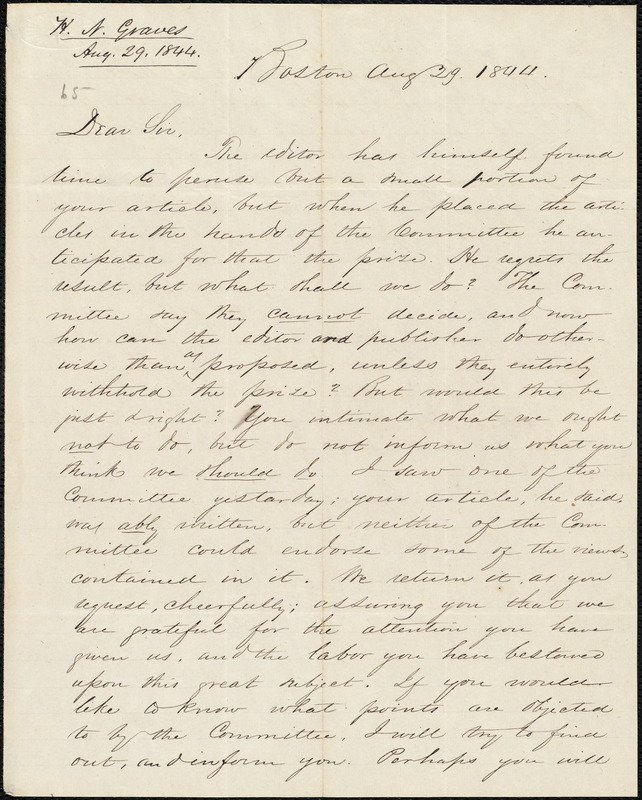 H. N. Graves
Aug. 29, 1844.
Boston Aug 29. 1844.
65
Dear Sir,
The editor has himself found
time to peruse but a small portion of
your article, but when he placed the arti-
cles in the hands of the Committee he an-
ticipated for that the prize. He regrets the
result, but what shall we do? The Com-
mittee say they cannot decide, and now
how can the editor and publisher do other-
wise than as proposed, unless they entirely
withhold the prize? But would this be
just & right? You intimate what we ought
not to do, but do not inform us what you
think we should do. I saw one of the
Committee yesterday; your article, he said,
was ably written, but neither of the Com-
mittee could endorse some of the views
contained in it. We return it, as you
request, cheerfully; assuring you that we
are grateful for the attention you have
given us, and the labor you have bestowed
upon this great subject. If you would
like to know what points are objected
to by the Committee, I will try to find
out, and inform you. Perhaps you will